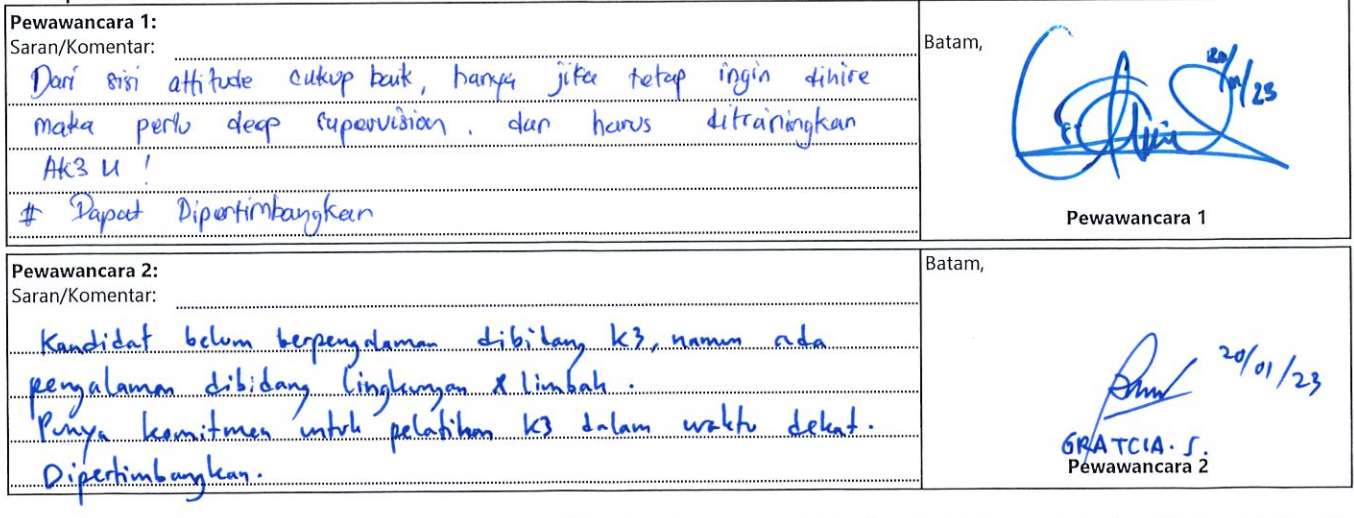 Pewawancara 1:
Saran/Komentar:
Dari sisi attitude cukup baik, hanya jika tetap ingin dihire
maka perlu deep supervision, dan harus ditrainingkan
AK3 U !
# Dapat Dipertimbangkan
Batam,
20/01/23
Pewawancara 1
Pewawancara 2:
Saran/Komentar:
Kandidat belum berpengalaman dibidang K3, namun ada
pengalaman dibidang lingkungan & limbah.
Punya komitmen untuk pelatihan K3 dalam waktu dekat.
Dipertimbangkan.
Batam,
20/01/23
GRATCIA. S.
Pewawancara 2